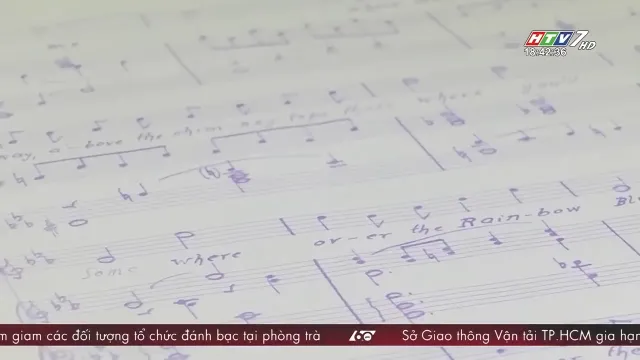 HTV7 HD
18:42:36
way, a-bove the chim ney tops that's where you'll
Some where ov-er the Rain-bow Bl
m giam các đối tượng tổ chức đánh bạc tại phòng trà
Sở Giao thông Vận tải TP.HCM gia hạn